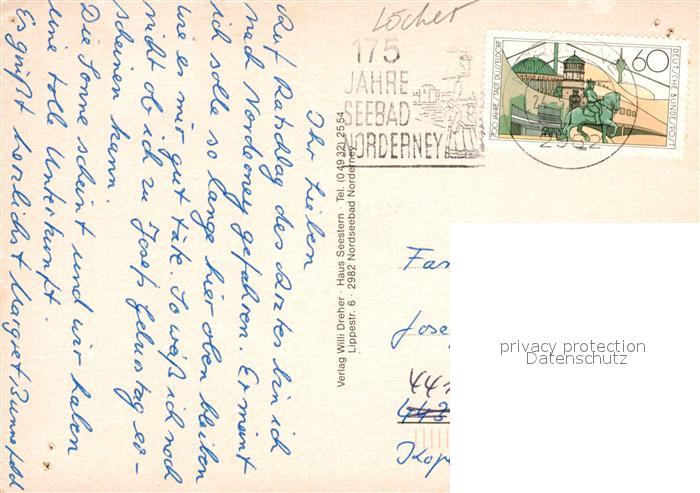 Löcher
175
JAHRE
SEEBAD
NORDERNEY
60
DEUTSCHE BUNDESPOST
700 JAHRE STADT DÜSSELDORF
2982
Ihr Lieben
Auf Ratschlag des Arztes bin ich
nach Norderney gefahren. Er meint
ich solle so lange hier oben bleiben
wie es mir gut täte. So weiß ich noch
nicht ob ich zu Josefs Geburtstag er-
scheinen kann.
Die Sonne scheint und wir haben
eine toll Unterkunft.
Es grüßt herzlichst Margret
Verlag Willi Dreher · Haus Seestern · Tel. (0 49 32) 25 54
Lippestr. 6 · 2982 Nordseebad Norderney
Fam
Jose
441
443
privacy protection
Datenschutz